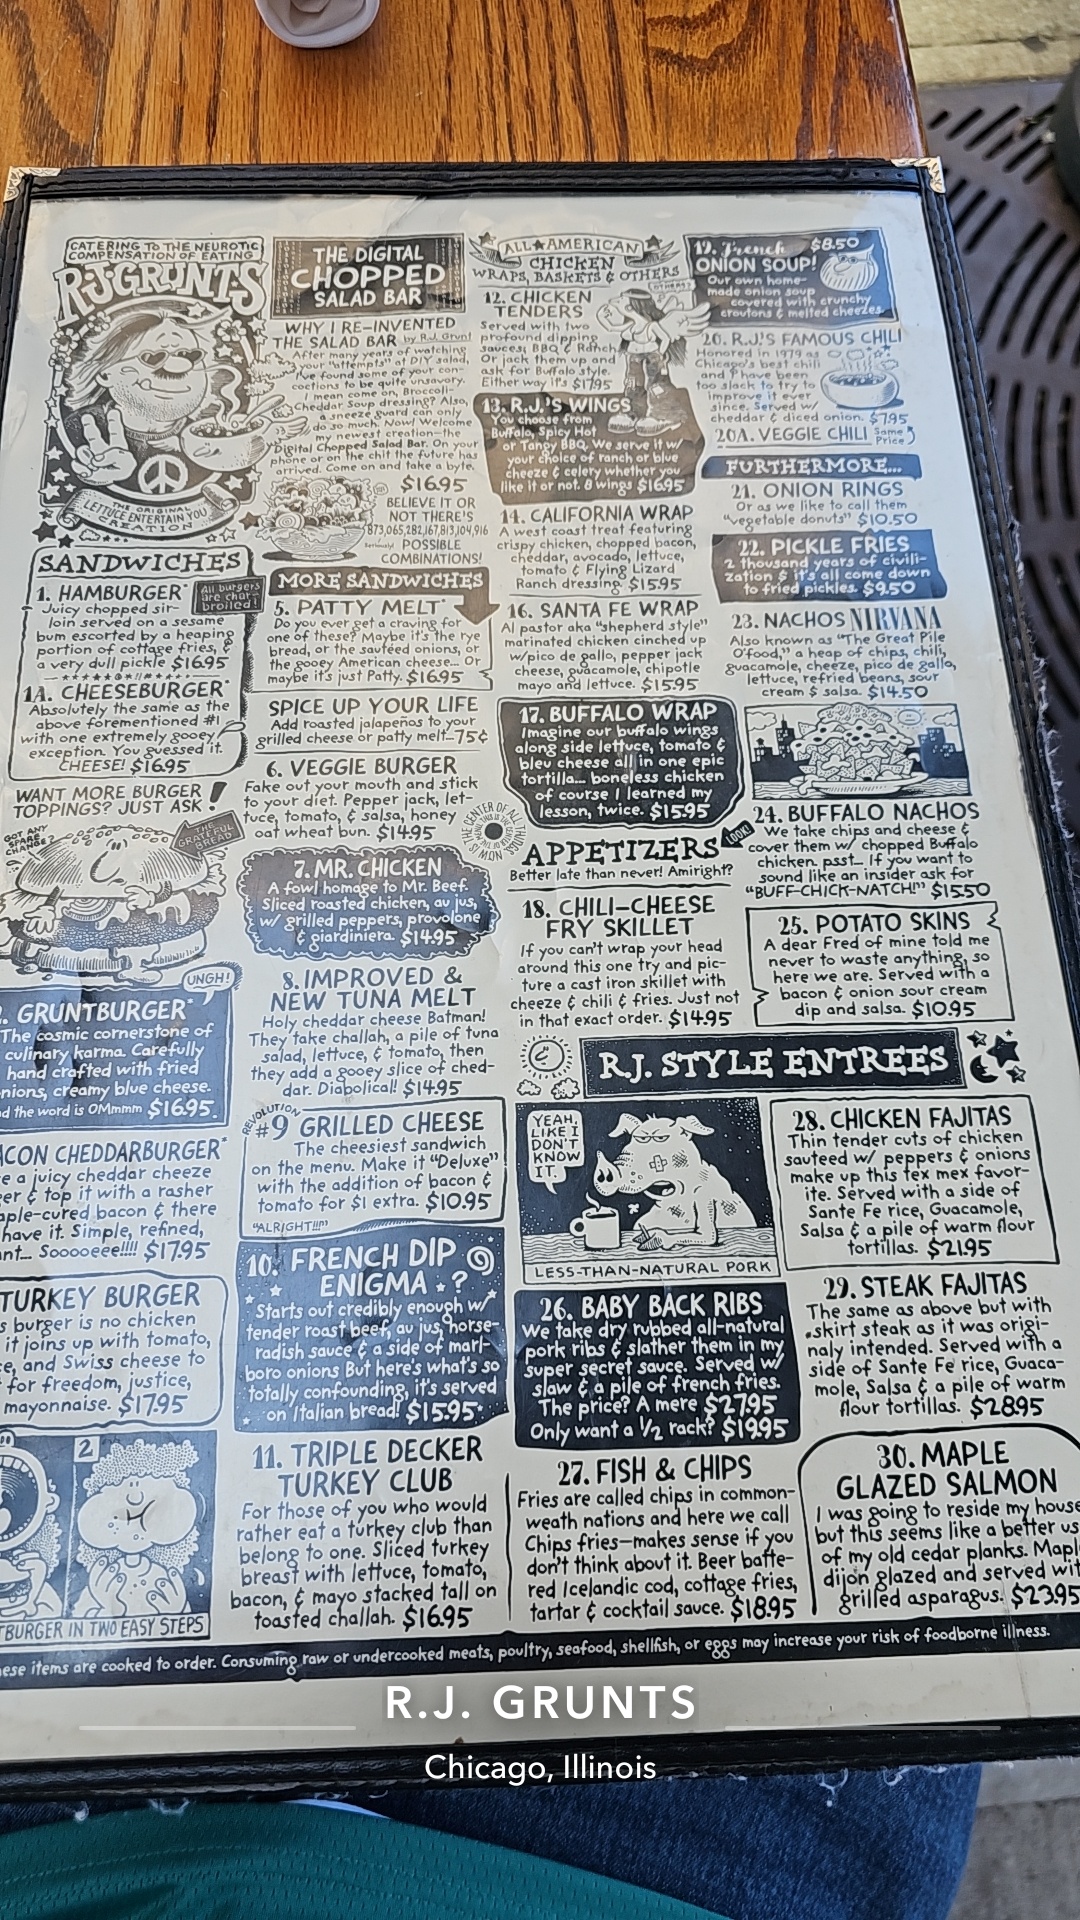 CATERING TO THE NEUROTIC
COMPENSATION OF EATING
R.J. GRUNTS
THE ORIGINAL
LETTUCE ENTERTAIN YOU
CREATION
SANDWICHES
1. HAMBURGER*
All burgers
are char-
broiled!
Juicy chopped sir-
loin served on a sesame
bum escorted by a heaping
portion of cottage fries, &
a very dull pickle $16.95
1A. CHEESEBURGER*
Absolutely the same as the
above forementioned #1
with one extremely gooey
exception. You guessed it.
CHEESE! $16.95
WANT MORE BURGER
TOPPINGS? JUST ASK!
GOT ANY
SPARE
CHANGE?
THE
GRATEFUL
BREAD
UNGH!
GRUNTBURGER*
The cosmic cornerstone of
culinary karma. Carefully
hand crafted with fried
nions, creamy blue cheese.
d the word is OMmmm $16.95
ACON CHEDDARBURGER*
e a juicy cheddar cheeze
er & top it with a rasher
aple-cured bacon & there
have it. Simple, refined,
nt... Soooooeee!!!! $17.95
TURKEY BURGER
s burger is no chicken
it joins up with tomato,
e, and Swiss cheese to
for freedom, justice,
mayonnaise. $17.95
2
TBURGER IN TWO EASY STEPS
THE DIGITAL
CHOPPED
SALAD BAR
WHY I RE-INVENTED
THE SALAD BAR by R.J. Grunt
After many years of watching
your "attempts" at salad,
I've found some of your con-
coctions to be quite unsavory.
I mean come on, Broccoli
Cheddar Soup dressing? Also,
a sneeze guard can only
do so much. Now! Welcome
my newest creation—the
Digital Chopped Salad Bar. On your
phone or on the chit the future has
arrived. Come on and take a byte.
$16.95
BELIEVE IT OR
NOT THERE'S
873,065,282,167,813,104,916
(seriously) POSSIBLE
COMBINATIONS!
MORE SANDWICHES
5. PATTY MELT*
Do you ever get a craving for
one of these? Maybe it's the rye
bread, or the sautéed onions, or
the gooey American cheese... Or
maybe it's just Patty. $16.95
SPICE UP YOUR LIFE
Add roasted jalapeños to your
grilled cheese or patty melt—75¢
6. VEGGIE BURGER
Fake out your mouth and stick
to your diet. Pepper jack, let-
tuce, tomato, & salsa, honey
oat wheat bun. $14.95
7. MR. CHICKEN
A fowl homage to Mr. Beef.
Sliced roasted chicken, au jus,
w/ grilled peppers, provolone
& giardiniera. $14.95
8. IMPROVED &
NEW TUNA MELT
Holy cheddar cheese Batman!
They take challah, a pile of tuna
salad, lettuce, & tomato, then
they add a gooey slice of ched-
dar. Diabolical! $14.95
REVOLUTION
#9 GRILLED CHEESE
The cheesiest sandwich
on the menu. Make it "Deluxe"
with the addition of bacon &
tomato for $1 extra. $10.95
"ALRIGHT!!!"
10. FRENCH DIP
ENIGMA ?
Starts out credibly enough w/
tender roast beef, au jus, horse-
radish sauce & a side of marl-
boro onions But here's what's so
totally confounding, it's served
on Italian bread! $15.95
11. TRIPLE DECKER
TURKEY CLUB
For those of you who would
rather eat a turkey club than
belong to one. Sliced turkey
breast with lettuce, tomato,
bacon, & mayo stacked tall on
toasted challah. $16.95
ALL★AMERICAN
CHICKEN
WRAPS, BASKETS & OTHERS
OTHERS?
12. CHICKEN
TENDERS
Served with two
profound dipping
sauces; BBQ & Ranch
Or jack them up and
ask for Buffalo style.
Either way it's $17.95
13. R.J.'S WINGS
You choose from
Buffalo, Spicy Hot
or Tangy BBQ. We serve it w/
your choice of ranch or blue
cheeze & celery whether you
like it or not. 8 wings $16.95
14. CALIFORNIA WRAP
A west coast treat featuring
crispy chicken, chopped bacon,
cheddar, avocado, lettuce,
tomato & Flying Lizard
Ranch dressing. $15.95
16. SANTA FE WRAP
Al pastor aka "shepherd style"
marinated chicken cinched up
w/pico de gallo, pepper jack
cheese, guacamole, chipotle
mayo and lettuce. $15.95
17. BUFFALO WRAP
Imagine our buffalo wings
along side lettuce, tomato &
bleu cheese all in one epic
tortilla... boneless chicken
of course I learned my
lesson, twice. $15.95
APPETIZERS
LOOK!
Better late than never! Amiright?
18. CHILI-CHEESE
FRY SKILLET
If you can't wrap your head
around this one try and pic-
ture a cast iron skillet with
cheeze & chili & fries. Just not
in that exact order. $14.95
19. French $8.50
ONION SOUP!
Our own home-
made onion soup
covered with crunchy
croutons & melted cheezes.
20. R.J.'S FAMOUS CHILI
Honored in 1979 as
Chicago's best chili
and I have been
too slack to try to
improve it ever
since. Served w/
cheddar & diced onion. $7.95
20A. VEGGIE CHILI (Same Price)
FURTHERMORE...
21. ONION RINGS
Or as we like to call them
"vegetable donuts" $10.50
22. PICKLE FRIES
2 thousand years of civili-
zation & it's all come down
to fried pickles. $9.50
23. NACHOS NIRVANA
Also known as "The Great Pile
O'food," a heap of chips, chili,
guacamole, cheeze, pico de gallo,
lettuce, refried beans, sour
cream & salsa. $14.50
24. BUFFALO NACHOS
We take chips and cheese &
cover them w/ chopped Buffalo
chicken. psst... If you want to
sound like an insider ask for
"BUFF-CHICK-NATCH!" $15.50
25. POTATO SKINS
A dear Fred of mine told me
never to waste anything, so
here we are. Served with a
bacon & onion sour cream
dip and salsa. $10.95
R.J. STYLE ENTREES
YEAH,
LIKE I
DON'T
KNOW
IT.
LESS-THAN-NATURAL PORK
26. BABY BACK RIBS
We take dry rubbed all-natural
pork ribs & slather them in my
super secret sauce. Served w/
slaw & a pile of french fries.
The price? A mere $27.95
Only want a ½ rack? $19.95
27. FISH & CHIPS
Fries are called chips in common-
weath nations and here we call
Chips fries—makes sense if you
don't think about it. Beer batte-
red Icelandic cod, cottage fries,
tartar & cocktail sauce. $18.95
28. CHICKEN FAJITAS
Thin tender cuts of chicken
sauteed w/ peppers & onions
make up this tex mex favor-
ite. Served with a side of
Sante Fe rice, Guacamole,
Salsa & a pile of warm flour
tortillas. $21.95
29. STEAK FAJITAS
The same as above but with
skirt steak as it was origi-
naly intended. Served with a
side of Sante Fe rice, Guaca-
mole, Salsa & a pile of warm
flour tortillas. $28.95
30. MAPLE
GLAZED SALMON
I was going to reside my house
but this seems like a better us
of my old cedar planks. Mapl
dijon glazed and served wit
grilled asparagus. $23.95
ese items are cooked to order. Consuming raw or undercooked meats, poultry, seafood, shellfish, or eggs may increase your risk of foodborne illness.
R.J. GRUNTS
Chicago, Illinois